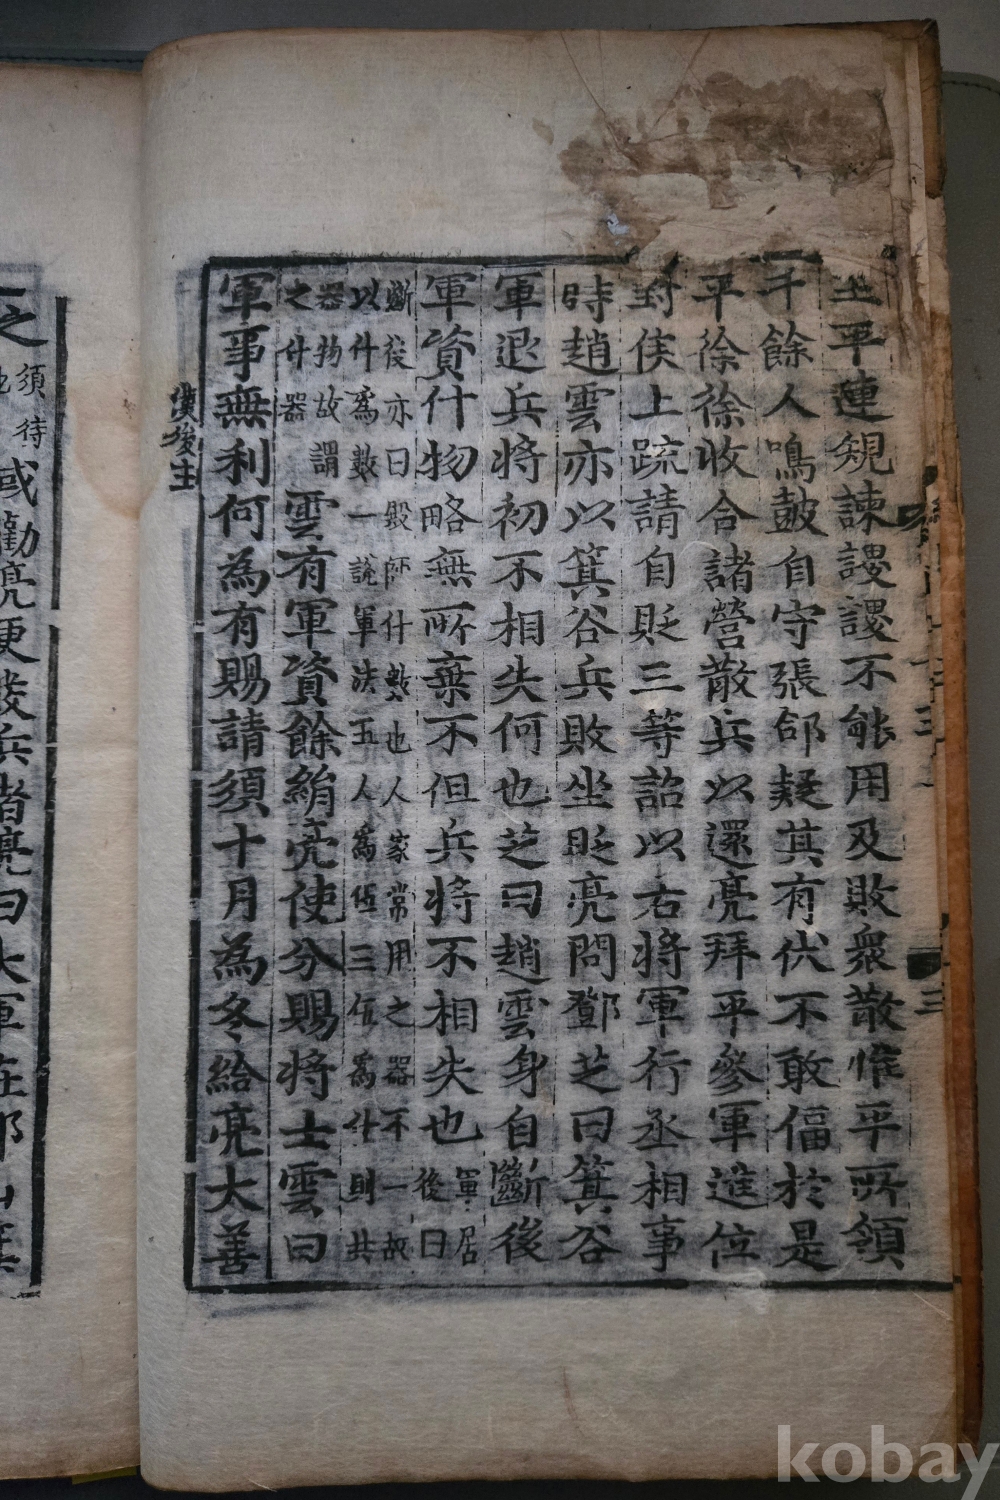 平連規諫謖謖不能用及敗衆散惟平所領
千餘人鳴鼓自守張郃疑其有伏不敢偪於是
平徐徐收合諸營散兵以還亮拜平參軍進位
封侯上疏請自貶三等詔以右將軍行丞相事
時趙雲亦以箕谷兵敗坐貶亮問鄧芝曰箕谷
軍退兵將初不相失何也芝曰趙雲身自斷後
軍居
後曰
軍資什物略無所棄不但兵將不相失也
斷後亦曰殿師什數也人家常用之器不一故
以件爲數一說軍法五人爲伍二伍爲什則共
器物故謂
之什器
雲有軍資餘絹亮使分賜將士雲曰
軍事無利何為有賜請須十月為冬給亮大善
漢後主
之
須待
或勸亮更發兵者亮曰大軍在祁山箕
三
kobay